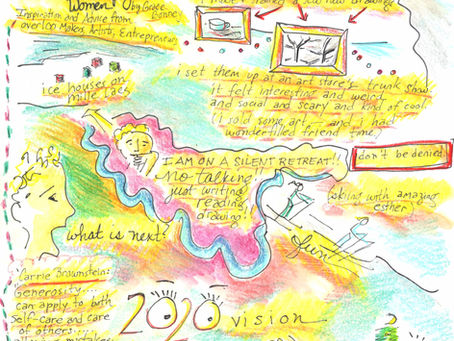 Women! by Grace Bonne
Inspiration and Advice from
over 100 Makers, Artists, Entrepreneurs
i set them up at an art store's trunk show.
it felt interesting and weird
and social and scary and kind of cool.
(i sold some art, and i had
wonderfilled friend time.)
ice houses on
mille lacs
I AM ON A SILENT RETREAT!!
no talking!
just writing
reading
drawing!!
don't be denied
skiing with amazing
esther
what is next?
fun
Carrie Brownstein:
Generosity...
can apply to both
Self-care and care
of others...
2020 vision